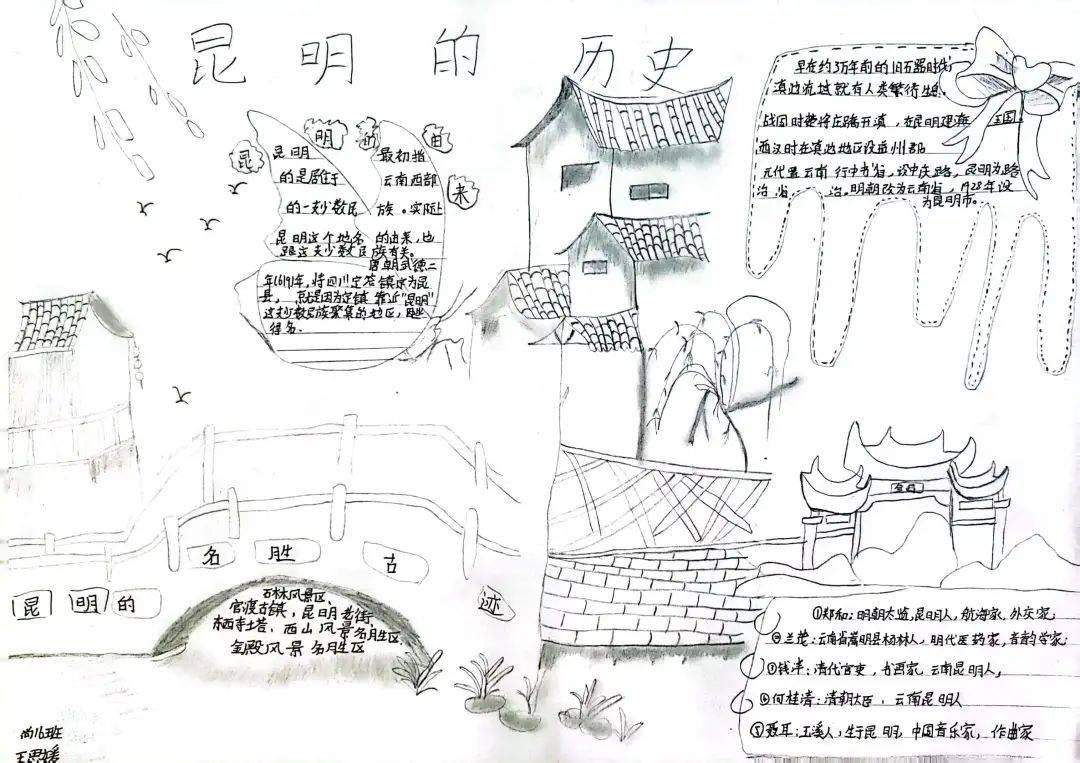 昆明的历史
昆明的由来
昆明 最初指
的是居住于 云南西部
的一支少数民 族。实际上
昆明这个地名 的由来,也
跟这支少数民族有关。
唐朝武德二
年(619)年,将四川定笮镇 为昆
县, 就是因为定镇 靠近“昆明”
这支少数民族聚集的地区,
得名。
早在约3万年前的旧石器时代
滇池流域就有人类繁衍生息。
战国时楚将庄蹻开滇,在昆明建滇 王国
西汉时在滇池地区设益州郡
元代置云南 行中书省,设中庆路,昆明为路
治 省 治。明朝改为云南省,1928年设
为昆明市。
昆明的名胜古迹
石林风景区,
官渡古镇,昆明老街,
栖寺塔,西山风景名胜区
金殿风景 名胜区
①郑和:明朝太监,昆明人,航海家,外交家;
②兰茂:云南省嵩明县杨林人,明代医药家,音韵学家;
③钱沣:清代官吏,书画家,云南昆明人,
④何桂清:清朝大臣,云南昆明人
⑤聂耳:玉溪人,生于昆明,中国音乐家,作曲家
王思媛